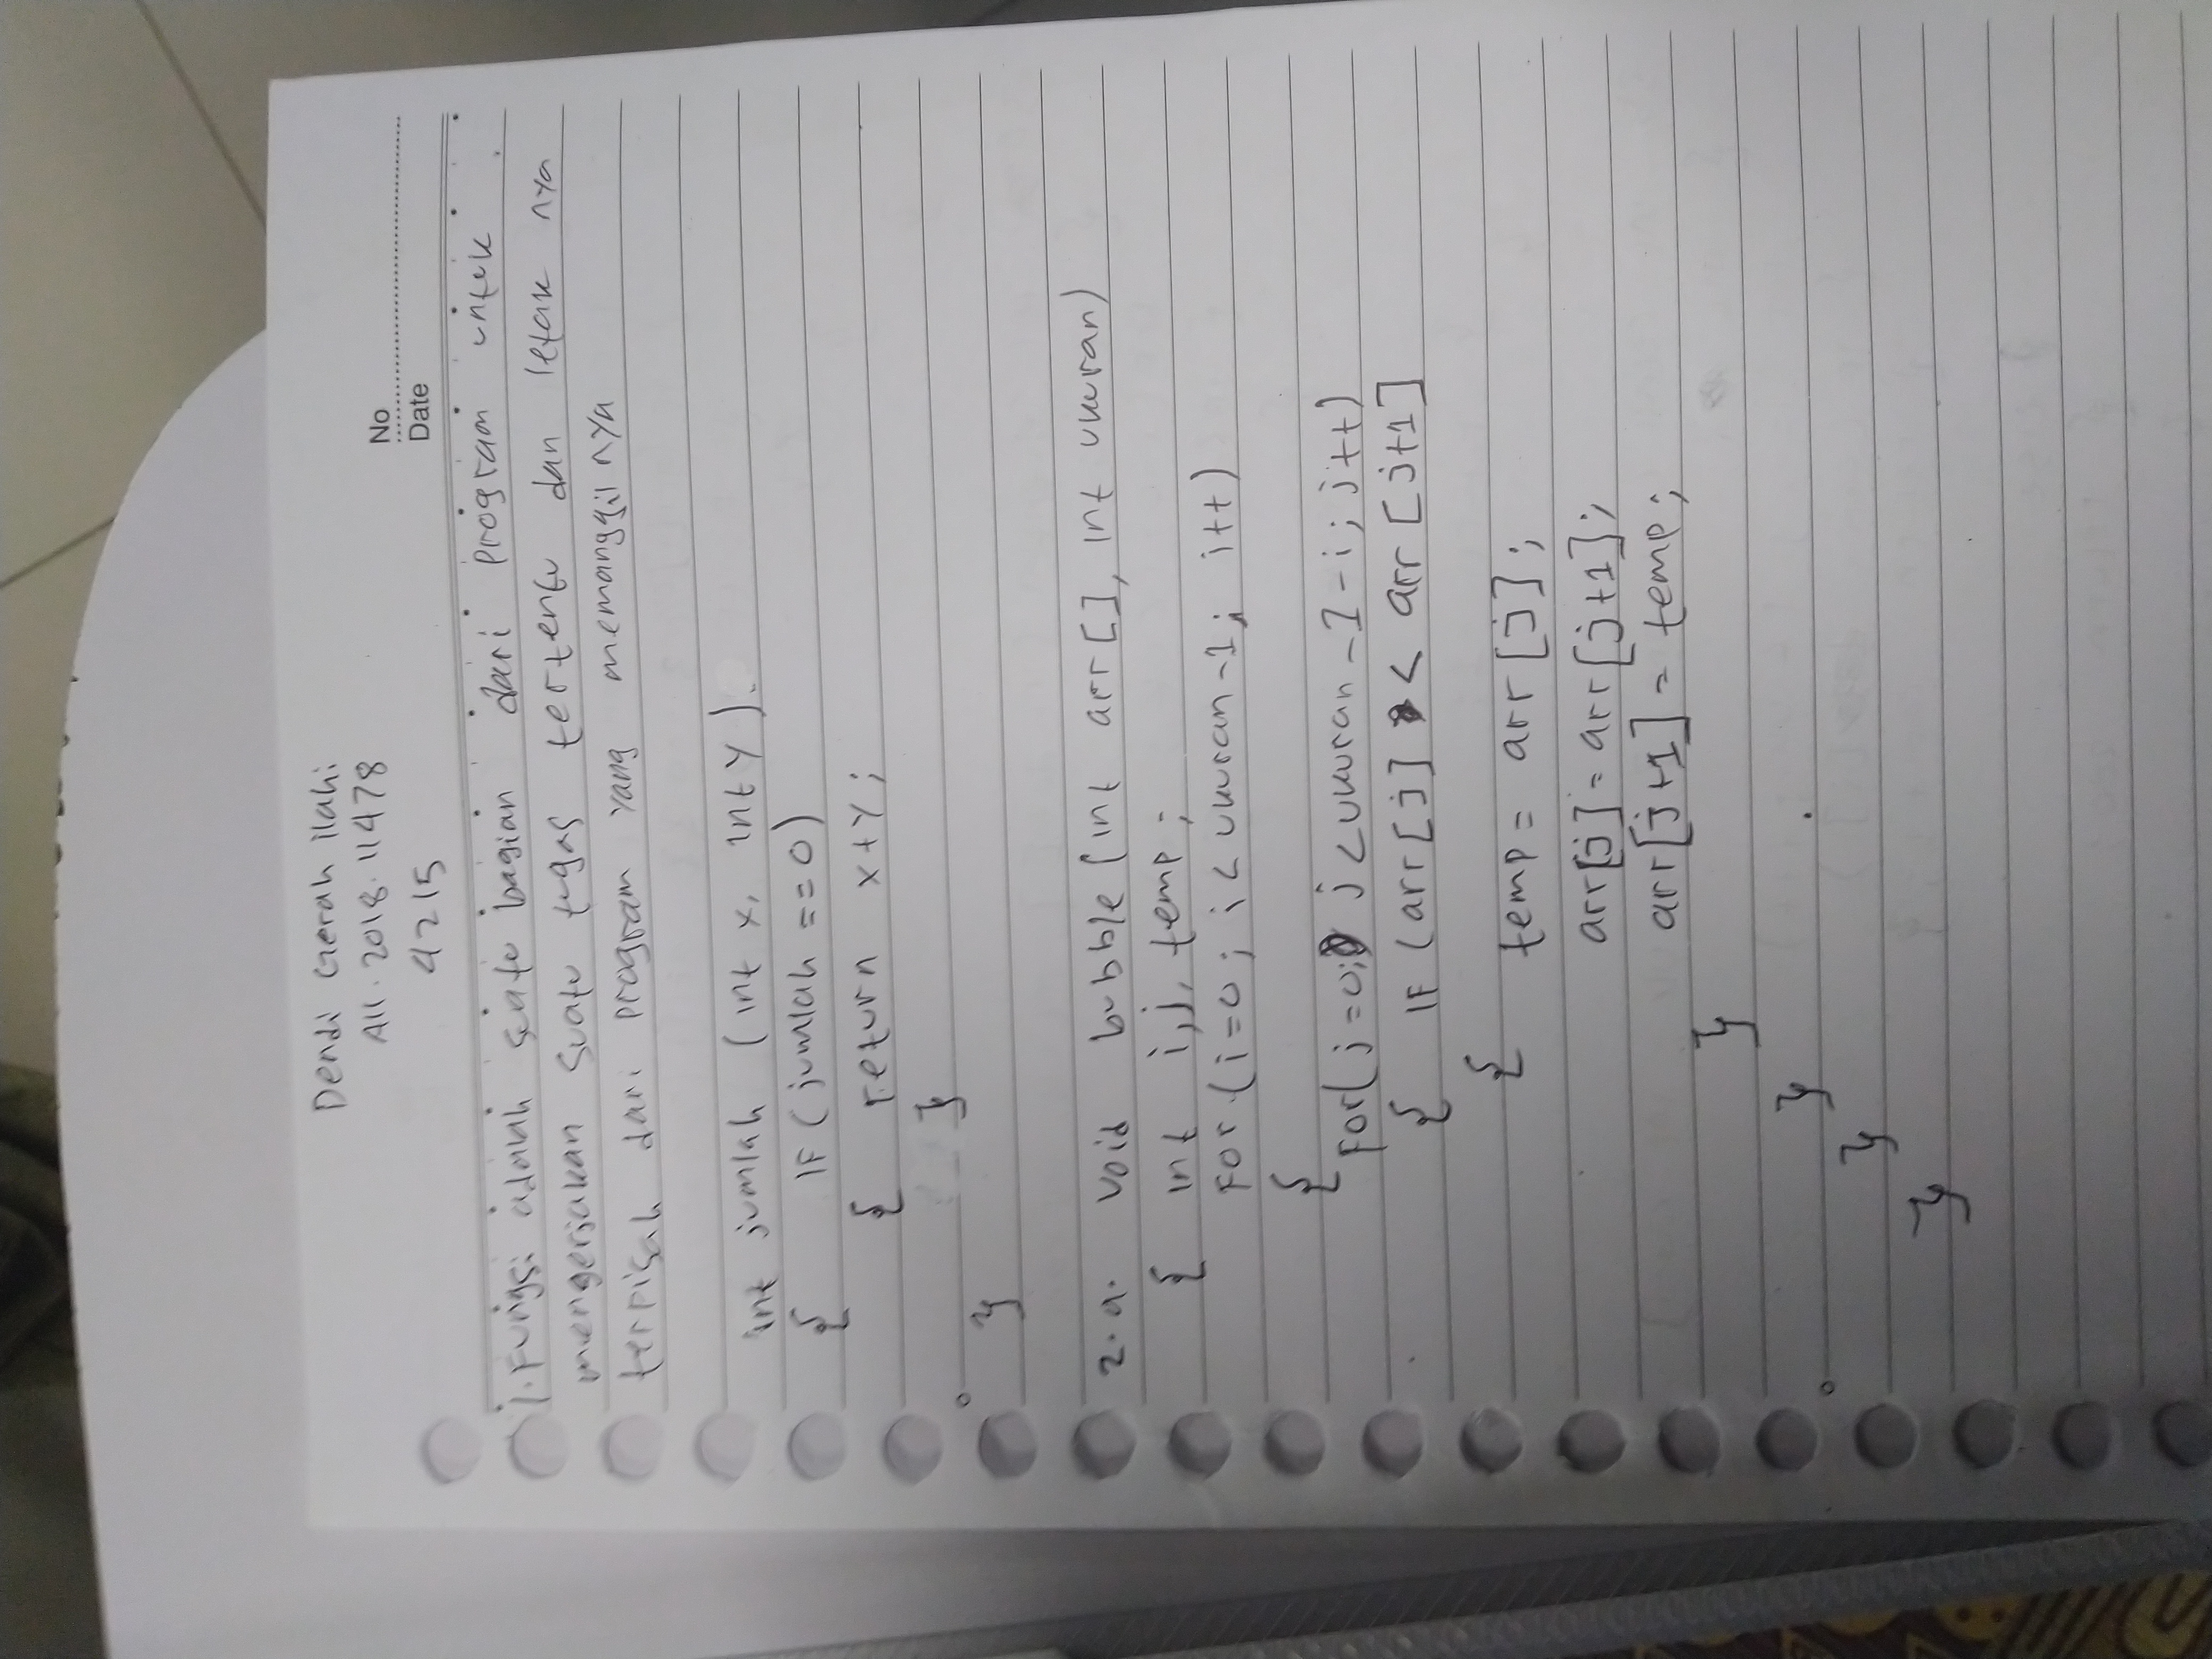 Dendi Gerah ilahi
A11.2018.11478
4215
No
Date
1. Fungsi adalah suatu bagian dari program untuk
mengerjakan suatu tugas tertentu dan letak nya
terpisah dari program yang memanggil nya
int jumlah (int x, int y).
{ IF (jumlah == 0)
{ return x+y;
}
}
2. a. void bubble (int arr[], int ukuran)
{ int i,j, temp;
for (i=0; i<ukuran-1; i++)
{
for(j=0; j<ukuran-1-i; j++)
{ IF (arr[j] < arr[j+1]
{ temp = arr[j];
arr[j]=arr[j+1];
arr[j+1] = temp;
}
}
}
}